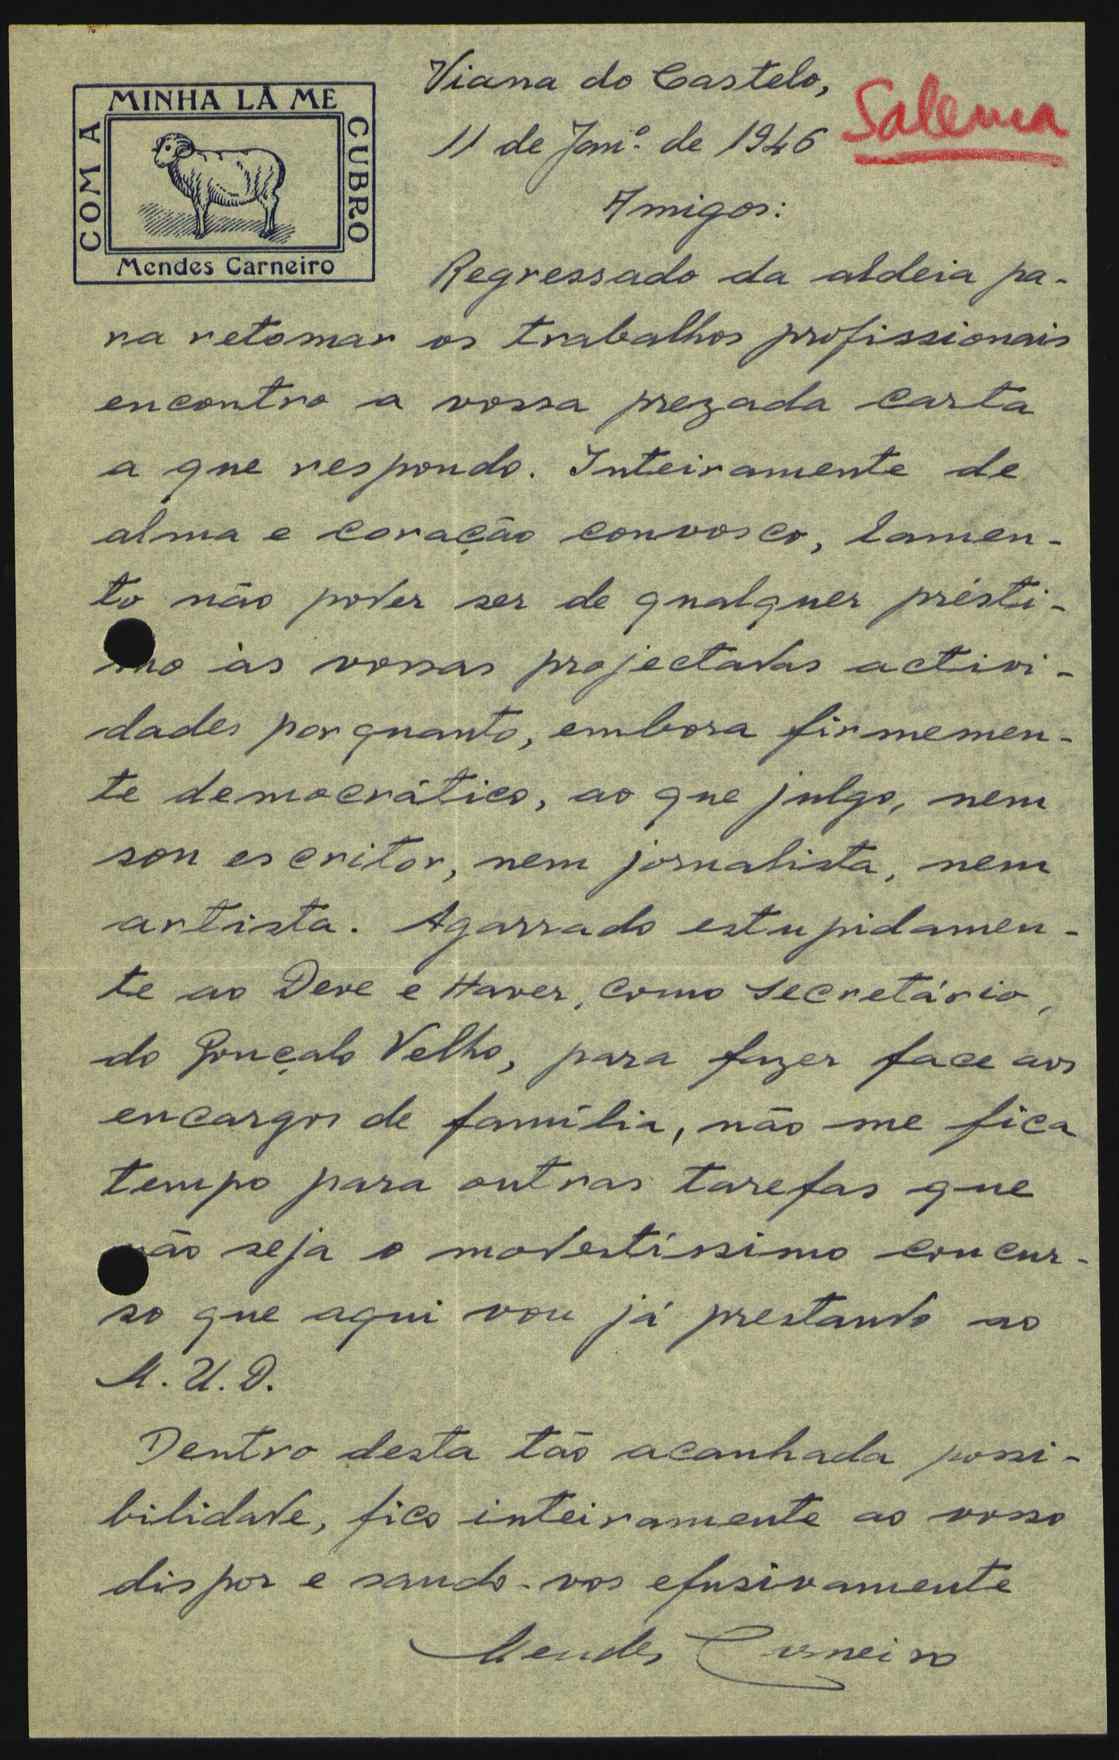 COM A MINHA LÃ ME CUBRO
Mendes Carneiro
Viana do Castelo,
11 de Jan.º de 1946
Salema
Amigos:
Regressado da aldeia pa-
ra retomar os trabalhos profissionais
encontro a vossa prezada carta
a que respondo. Inteiramente de
alma e coração convosco, lamen-
to não poder ser de qualquer présti-
mo às vossas projectadas activi-
dades porquanto, embora firmemen-
te democrático, ao que julgo, nem
sou escritor, nem jornalista, nem
artista. Agarrado estupidamen-
te ao Deve e Haver, como secretário,
do Gonçalo Velho, para fazer face aos
encargos de família, não me fica
tempo para outras tarefas que
não seja o modestíssimo concur-
so que aqui vou já prestando ao
M. U. D.
Dentro desta tão acanhada possi-
bilidade, fico inteiramente ao vosso
dispor e saudo-vos efusivamente
Mendes Carneiro